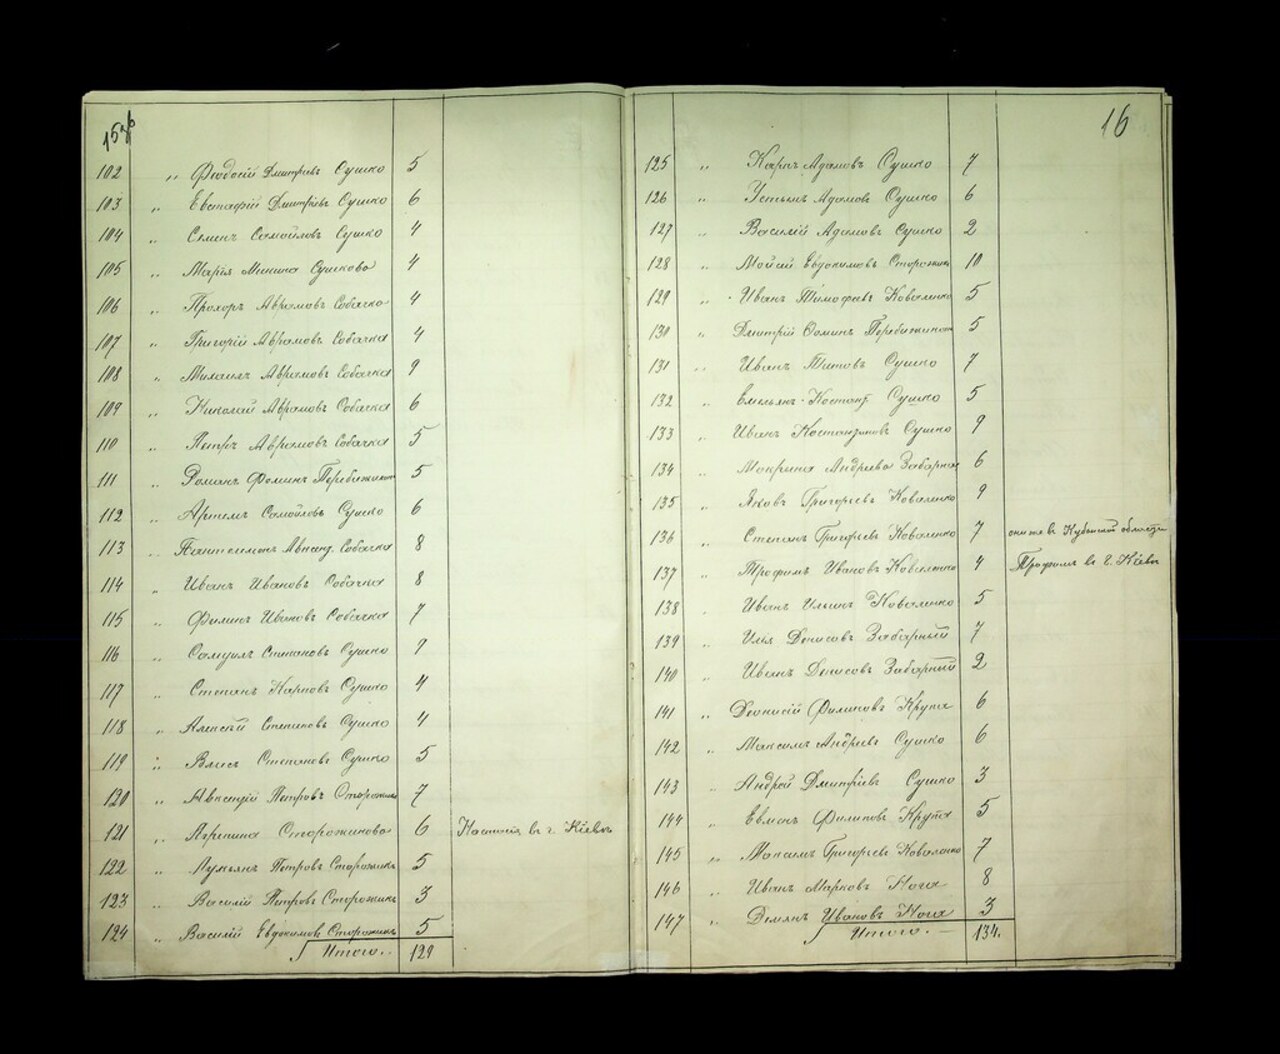 102 " Феодосій Дмитріевъ Сушко 5
103 " Евстафій Дмитріевъ Сушко 6
104 " Семенъ Самойловъ Сушко 4
105 " Марія Минина Сушкова 4
106 " Прохоръ Аврамовъ Собачко 4
107 " Григорій Аврамовъ Собачка 4
108 " Михаилъ Аврамовъ Собачка 9
109 " Николай Аврамовъ Собачка 6
110 " Петръ Аврамовъ Собачка 5
111 " Романъ Фоминъ 5
112 " Артемъ Самойловъ Сушко 6
113 " Пантелимонъ Собачка 8
114 " Иванъ Ивановъ Собачка 8
115 " Филипъ Ивановъ Собачка 7
116 " Самуилъ Степановъ Сушко 9
117 " Степанъ Карповъ Сушко 4
118 " Алексѣй Степановъ Сушко 4
119 " Власъ Степановъ Сушко 5
120 " Авксентій Петровъ Сторожикъ 7
121 " Агрепина Сторожикова 6 въ г. Кіевѣ
122 " Лукьянъ Петровъ Сторожикъ 5
123 " Василій Петровъ Сторожикъ 3
124 " Василій Евдокимовъ Сторожикъ 5
Итого.. 129
16
125 " Карпъ Адамовъ Сушко 7
126 " Устимъ Адамовъ Сушко 6
127 " Василій Адамовъ Сушко 2
128 " Мойсей Евдокимовъ Сторожикъ 10
129 " Иванъ Тимофеевъ Коваленко 5
130 " Дмитрій Фоминъ 5
131 " Иванъ Титовъ Сушко 7
132 " Емельянъ Костант. Сушко 5
133 " Иванъ Костантиновъ Сушко 9
134 " Макрина Андреева Забарная 6
135 " Яковъ Григорьевъ Коваленко 9
136 " Степанъ Григорьевъ Коваленко 7 въ Кубанской области
137 " Трофимъ Ивановъ Коваленко 4 Трофимъ въ г. Кіевѣ
138 " Иванъ Ильинъ Коваленко 5
139 " Илья Денисовъ Забарный 7
140 " Иванъ Денисовъ Забарный 2
141 " Діонисій Филиповъ Крупа 6
142 " Максимъ Андреевъ Сушко 6
143 " Андрей Дмитріевъ Сушко 3
144 " Евменъ Филиповъ Крупа 5
145 " Максимъ Григорьевъ Коваленко 7
146 " Иванъ Марковъ Нога 8
147 " Демянъ Ивановъ Нога 3
Итого. 134.